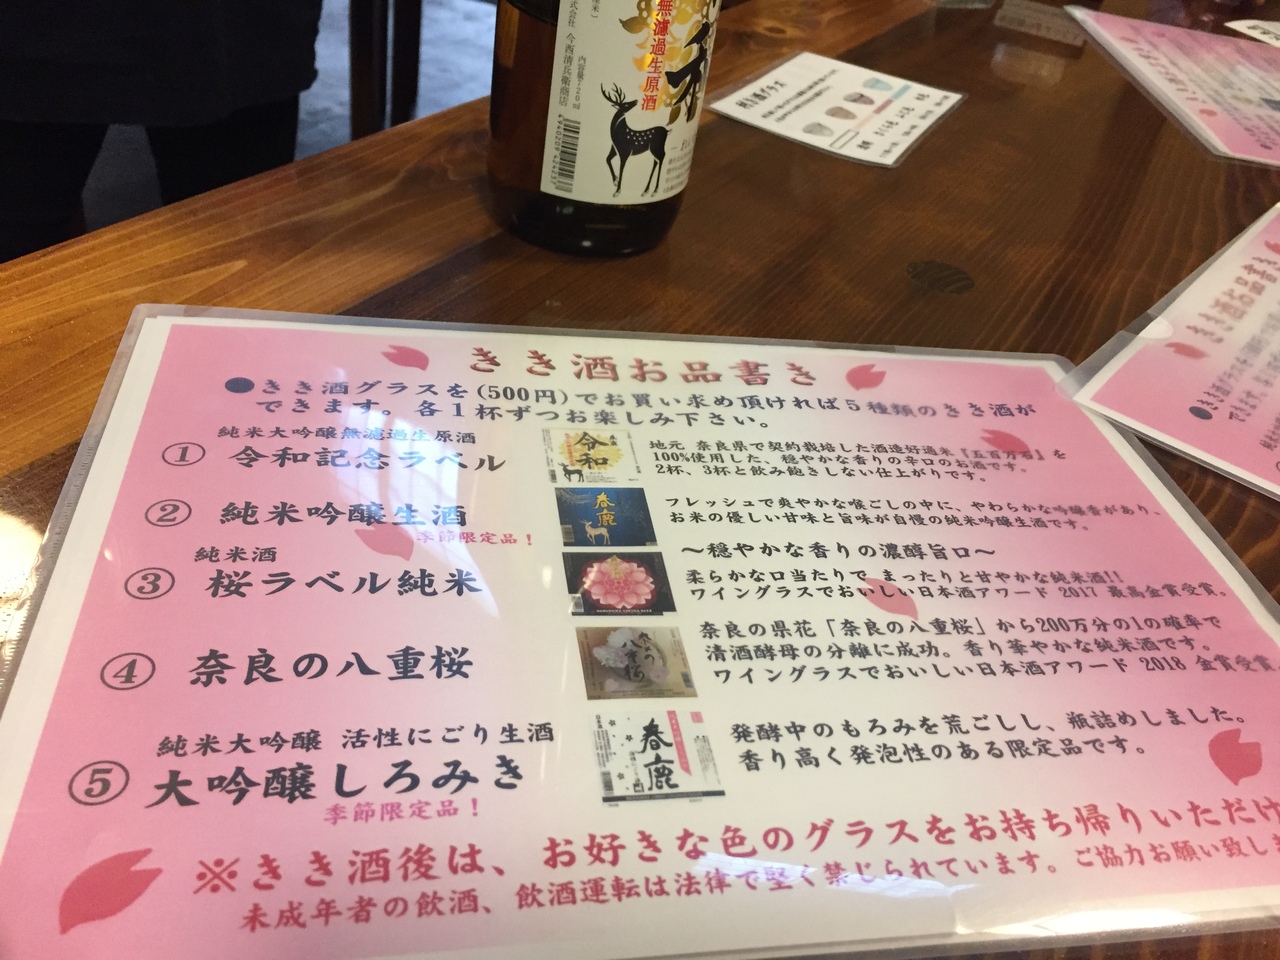 無濾過生原酒
今西清兵衛商店
内容量720ml
利き酒グラス
きき酒お品書き
●きき酒グラスを(500円)でお買い求め頂ければ5種類のきき酒が
できます。各1杯ずつお楽しみ下さい。
純米大吟醸無濾過生原酒
① 令和記念ラベル
令和
地元、奈良県で契約栽培した酒造好適米『五百万石』を
100%使用した、穏やかな香りの辛口のお酒です。
2杯、3杯と飲み飽きしない仕上がりです。
② 純米吟醸生酒
季節限定品！
春鹿
フレッシュで爽やかな喉ごしの中に、やわらかな吟醸香があり、
お米の優しい甘味と旨味が自慢の純米吟醸生酒です。
純米酒
③ 桜ラベル純米
～穏やかな香りの濃醇旨口～
柔らかな口当たりで まったりと甘やかな純米酒!!
ワイングラスでおいしい日本酒アワード 2017 最高金賞受賞。
④ 奈良の八重桜
奈良の県花「奈良の八重桜」から200万分の1の確率で
清酒酵母の分離に成功。香り華やかな純米酒です。
ワイングラスでおいしい日本酒アワード 2018 金賞受賞
純米大吟醸 活性にごり生酒
⑤ 大吟醸しろみき
季節限定品！
春鹿
発酵中のもろみを荒ごしし、瓶詰めしました。
香り高く発泡性のある限定品です。
※きき酒後は、お好きな色のグラスをお持ち帰りいただけ
未成年者の飲酒、飲酒運転は法律で堅く禁じられています。ご協力お願い致し
きき酒お品書き